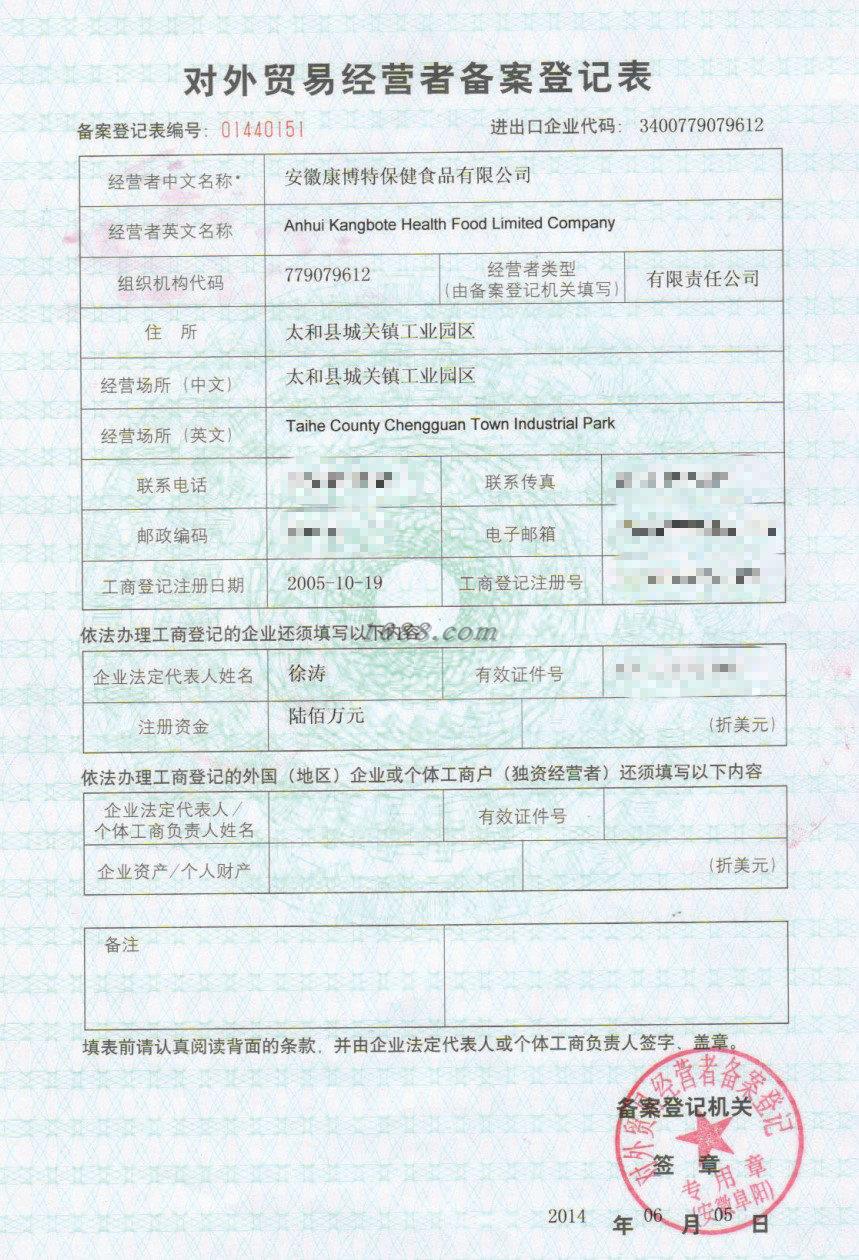 对外贸易经营者备案登记表
备案登记表编号: 01440151 进出口企业代码: 3400779079612
经营者中文名称 安徽康博特保健食品有限公司
经营者英文名称 Anhui Kangbote Health Food Limited Company
组织机构代码 779079612 经营者类型 (由备案登记机关填写) 有限责任公司
住 所 太和县城关镇工业园区
经营场所（中文） 太和县城关镇工业园区
经营场所（英文） Taihe County Chengguan Town Industrial Park
联系电话 联系传真
邮政编码 电子邮箱
工商登记注册日期 2005-10-19 工商登记注册号
依法办理工商登记的企业还须填写以下内容
1688.com
企业法定代表人姓名 徐涛 有效证件号
注册资金 陆佰万元 (折美元)
依法办理工商登记的外国（地区）企业或个体工商户（独资经营者）还须填写以下内容
企业法定代表人/
个体工商负责人姓名 有效证件号
企业资产/个人财产 (折美元)
备注
填表前请认真阅读背面的条款，并由企业法定代表人或个体工商负责人签字、盖章。
对外贸易经营者备案登记
备案登记机关
签 章
专用章
(安徽阜阳)
2014 年 06 月 05 日